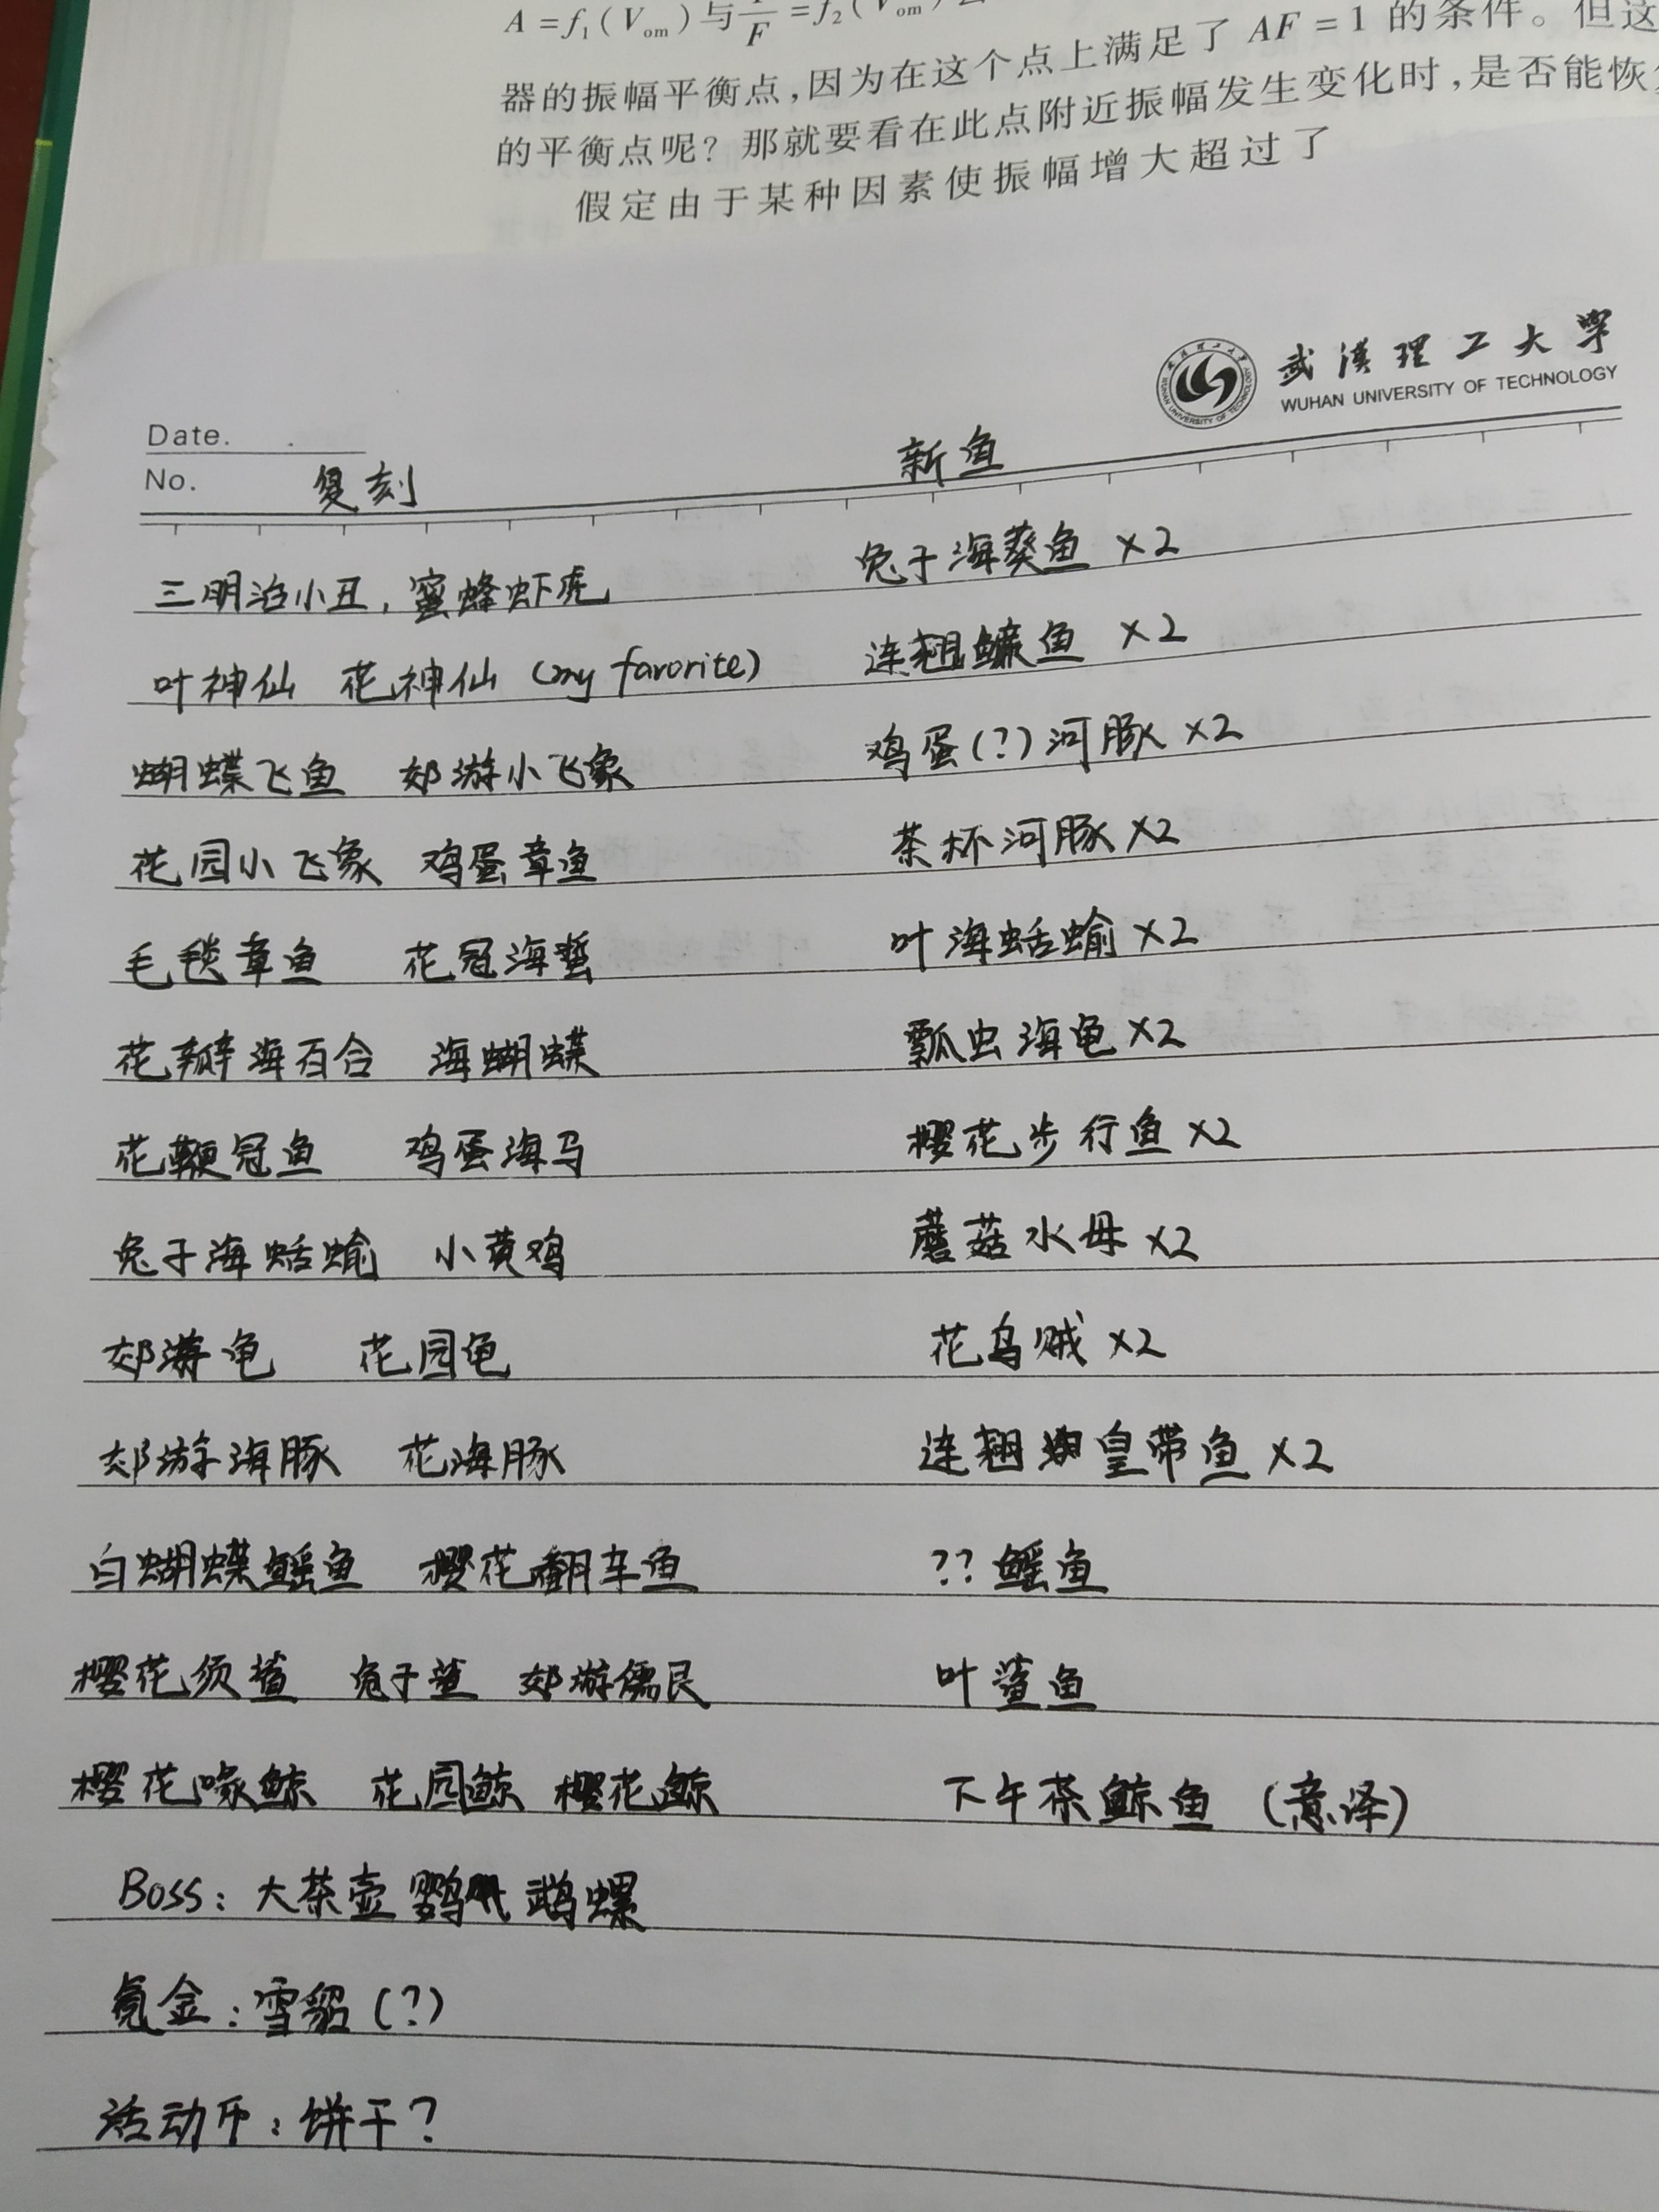 A = f₁(Vom)与1/F = f₂(Vom)
器的振幅平衡点,因为在这个点上满足了 AF = 1 的条件。但这
的平衡点呢? 那就要看在此点附近振幅发生变化时,是否能恢
假定由于某种因素使振幅增大超过了
武汉理工大学
WUHAN UNIVERSITY OF TECHNOLOGY
Date.
No.
复刻 新鱼
三明治小丑, 蜜蜂虾虎 兔子海葵鱼 ×2
叶神仙 花神仙 (my favorite) 连翘鳙鱼 ×2
蝴蝶飞鱼 郊游小飞象 鸡蛋(?)河豚 ×2
花园小飞象 鸡蛋章鱼 茶杯河豚 ×2
毛毯章鱼 花冠海蜇 叶海蛞蝓 ×2
花瓣海百合 海蝴蝶 瓢虫海龟 ×2
花鞭冠鱼 鸡蛋海马 樱花步行鱼 ×2
兔子海蛞蝓 小黄鸡 蘑菇水母 ×2
郊游龟 花园龟 花乌贼 ×2
郊游海豚 花海豚 连翘皇带鱼 ×2
白蝴蝶鳐鱼 樱花翻车鱼 ??鳐鱼
樱花须鲨 兔子鲨 郊游儒艮 叶鲨鱼
樱花喙鲸 花园鲸 樱花鲸 下午茶鲸鱼 (意译)
Boss: 大茶壶鹦鹉螺
氪金: 雪貂(?)
活动币: 饼干?